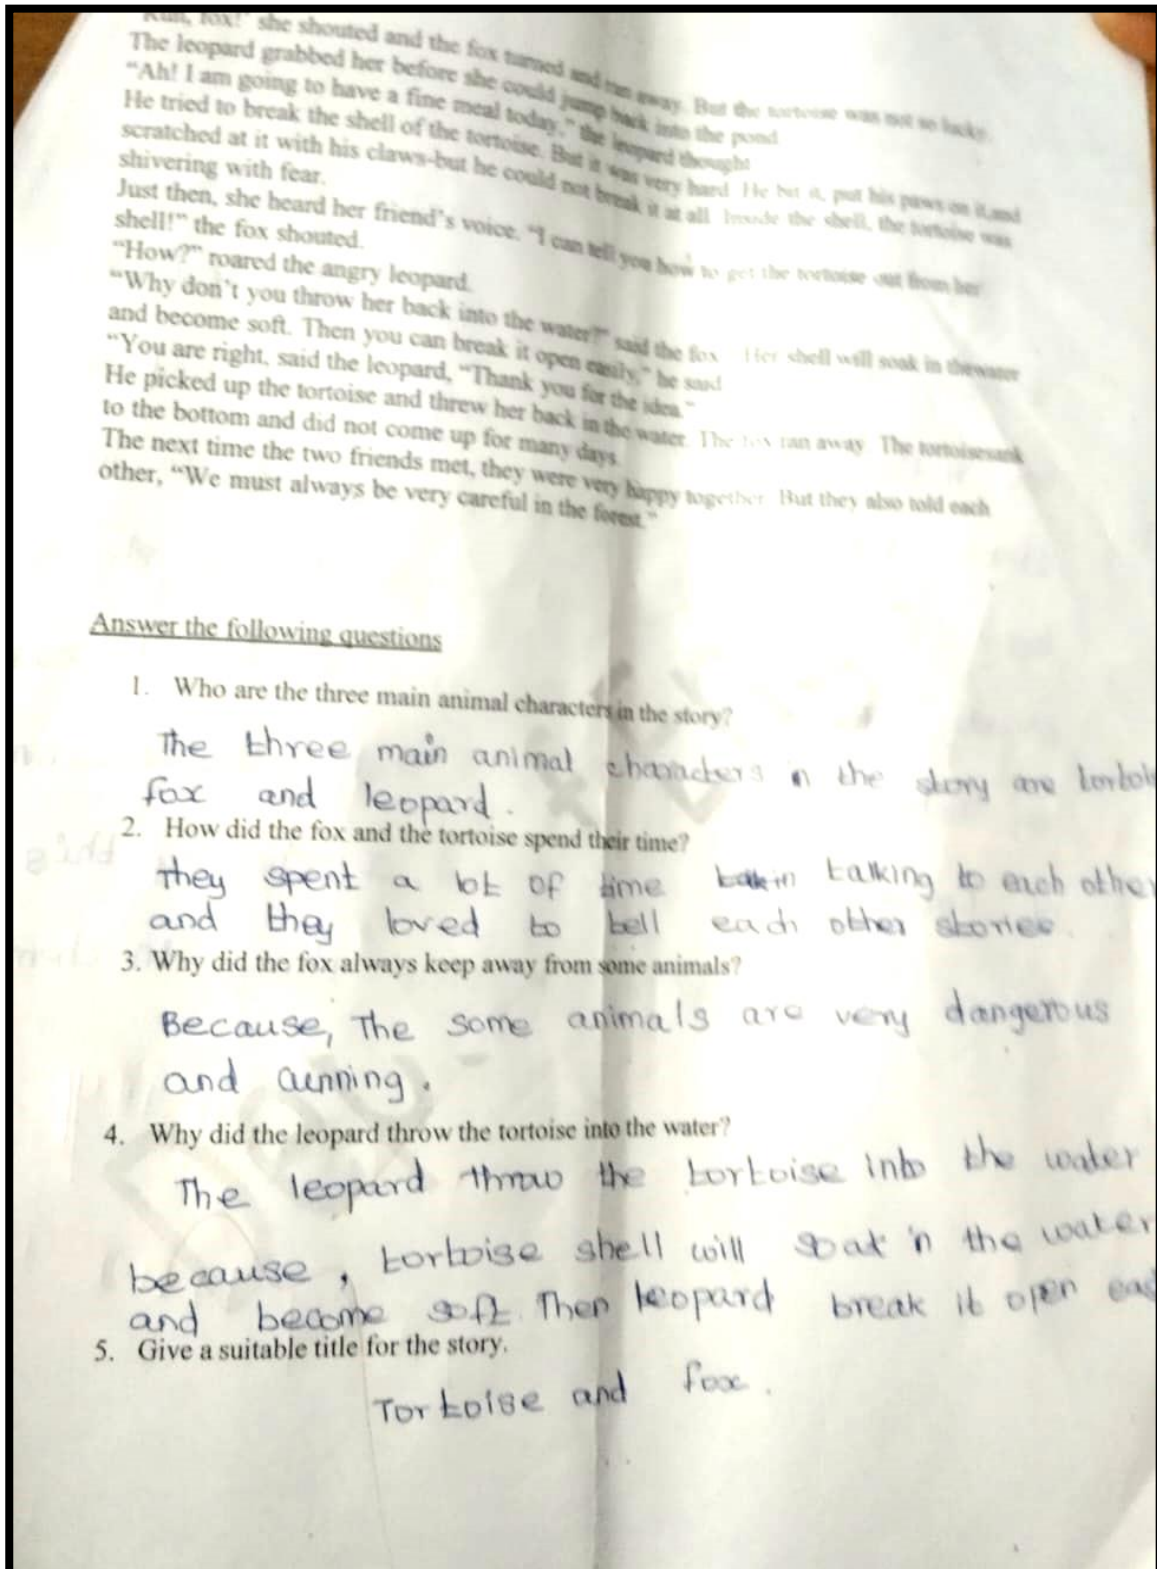 "Run, fox!" she shouted and the fox turned and ran away. But the tortoise was not so lucky.
The leopard grabbed her before she could jump back into the pond
"Ah! I am going to have a fine meal today," the leopard thought
He tried to break the shell of the tortoise. But it was very hard. He bit it, put his paws on it and
scratched at it with his claws-but he could not break it at all. Inside the shell, the tortoise was
shivering with fear.
Just then, she heard her friend's voice. "I can tell you how to get the tortoise out from her
shell!" the fox shouted.
"How?" roared the angry leopard.
"Why don't you throw her back into the water?" said the fox. Her shell will soak in thewater
and become soft. Then you can break it open easily," he said
"You are right, said the leopard, "Thank you for the idea."
He picked up the tortoise and threw her back in the water. The fox ran away. The tortoisesank
to the bottom and did not come up for many days.
The next time the two friends met, they were very happy together. But they also told each
other, "We must always be very careful in the forest."
Answer the following questions
1. Who are the three main animal characters in the story?
The three main animal characters in the story are tortois
fox and leopard.
2. How did the fox and the tortoise spend their time?
They spent a lot of time talking to each other
and they loved to tell each other stories.
3. Why did the fox always keep away from some animals?
Because, The some animals are very dangerous
and cunning.
4. Why did the leopard throw the tortoise into the water?
The leopard throw the tortoise into the water
because, tortoise shell will soak in the water
and become soft. Then leopard break it open eas
5. Give a suitable title for the story.
Tortoise and fox.